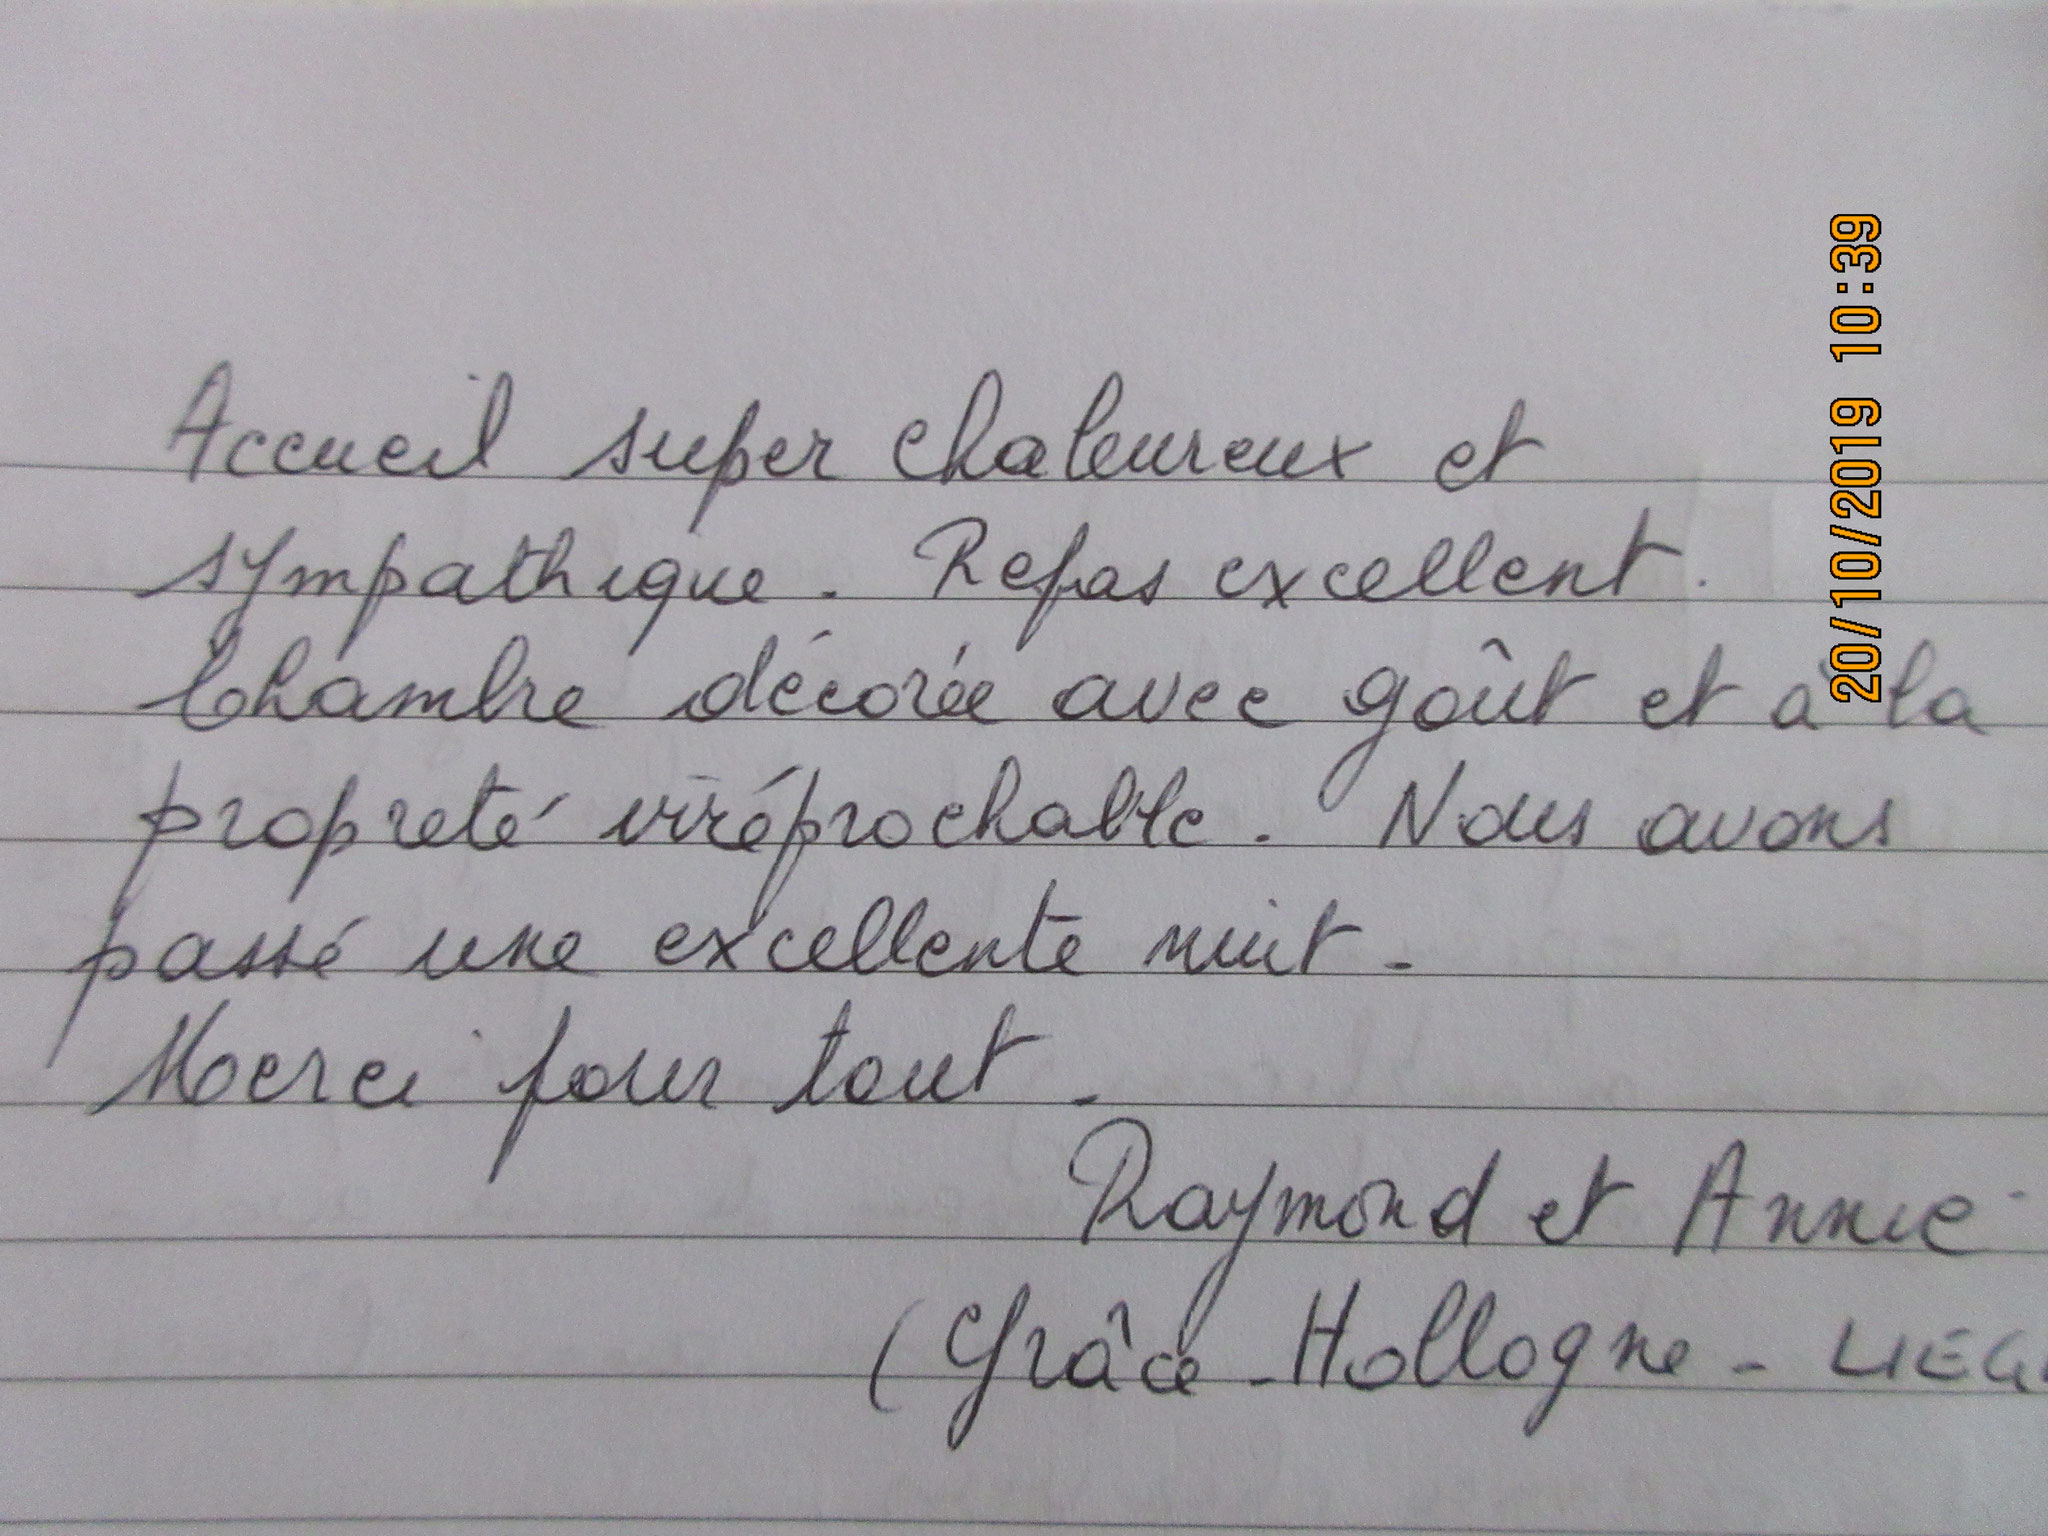 Accueil super chaleureux et
sympathique. Repas excellent.
Chambre décorée avec goût et à la
propreté irréprochable. Nous avons
passé une excellente nuit.
Merci pour tout.
Raymond et Annie
(Grâce-Hollogne - LIEG
20/10/2019 10:39